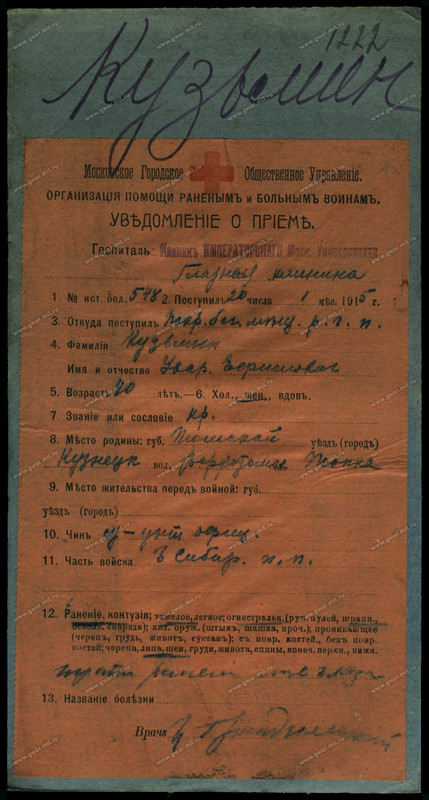 1222
Кузьмин
Московское Городское Общественное Управленіе.
ОРГАНИЗАЦІЯ ПОМОЩИ РАНЕНЫМЪ и БОЛЬНЫМЪ ВОИНАМЪ.
УВѢДОМЛЕНІЕ О ПРІЕМѢ.
Госпиталь: Клиник ИМПЕРАТОРСКАГО Моск. Университета
Глазная клиника
1 № ист. бол. 548 2. Поступилъ 20 числа 1 мѣс. 1915 г.
3. Откуда поступилъ
4. Фамилія Кузьмин
Имя и отчество
5. Возрастъ лѣтъ.—6. Хол., жен., вдов.
7. Званіе или сословіе кр.
8. Мѣсто родины: губ. Томской уѣздъ (городъ)
Кузнецк вол.
9. Мѣсто жительства передъ войной: губ.
уѣздъ (городъ)
10. Чинъ унт офиц.
11. Часть войска 3 Сибир. п. п.
12. Раненіе, контузія; тяжелое, легкое; огнестрѣльн. (руж. пулей, шрапн., оскол. снаряда); хол. оруж. (штыкъ, шашка, проч.); проникающее
(черепъ, грудь, животъ, суставъ); съ повр. костей, безъ повр.
костей; черепа, лица, шеи, груди, живота, спины, конеч. верхн., нижн.
13. Названіе болѣзни
Врачъ